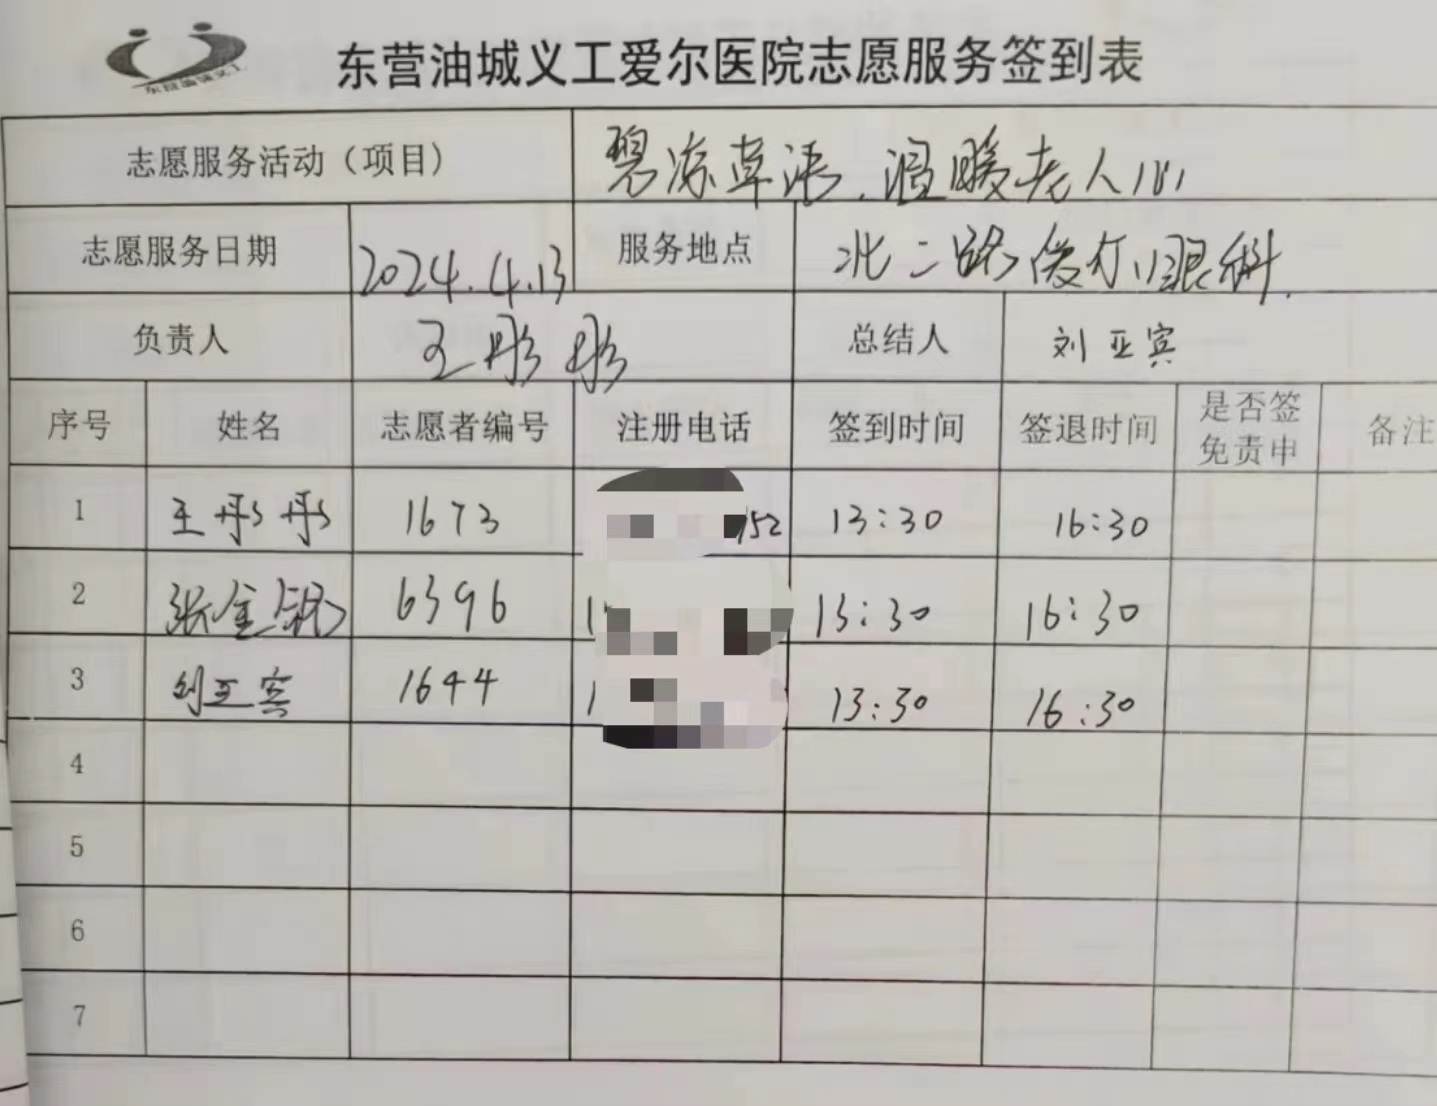 东营油城义工爱尔医院志愿服务签到表
东营油城义工
志愿服务活动（项目） 碧 草 温暖老人心
志愿服务日期 2024.4.13 服务地点 北二路 眼科.
负责人 王彤彤 总结人 刘亚宾
序号 姓名 志愿者编号 注册电话 签到时间 签退时间 是否签 备注
免责申
1 王彤彤 1673 752 13:30 16:30
2 张金 6396 1 13:30 16:30
3 刘亚宾 1644 1 13:30 16:30
4
5
6
7